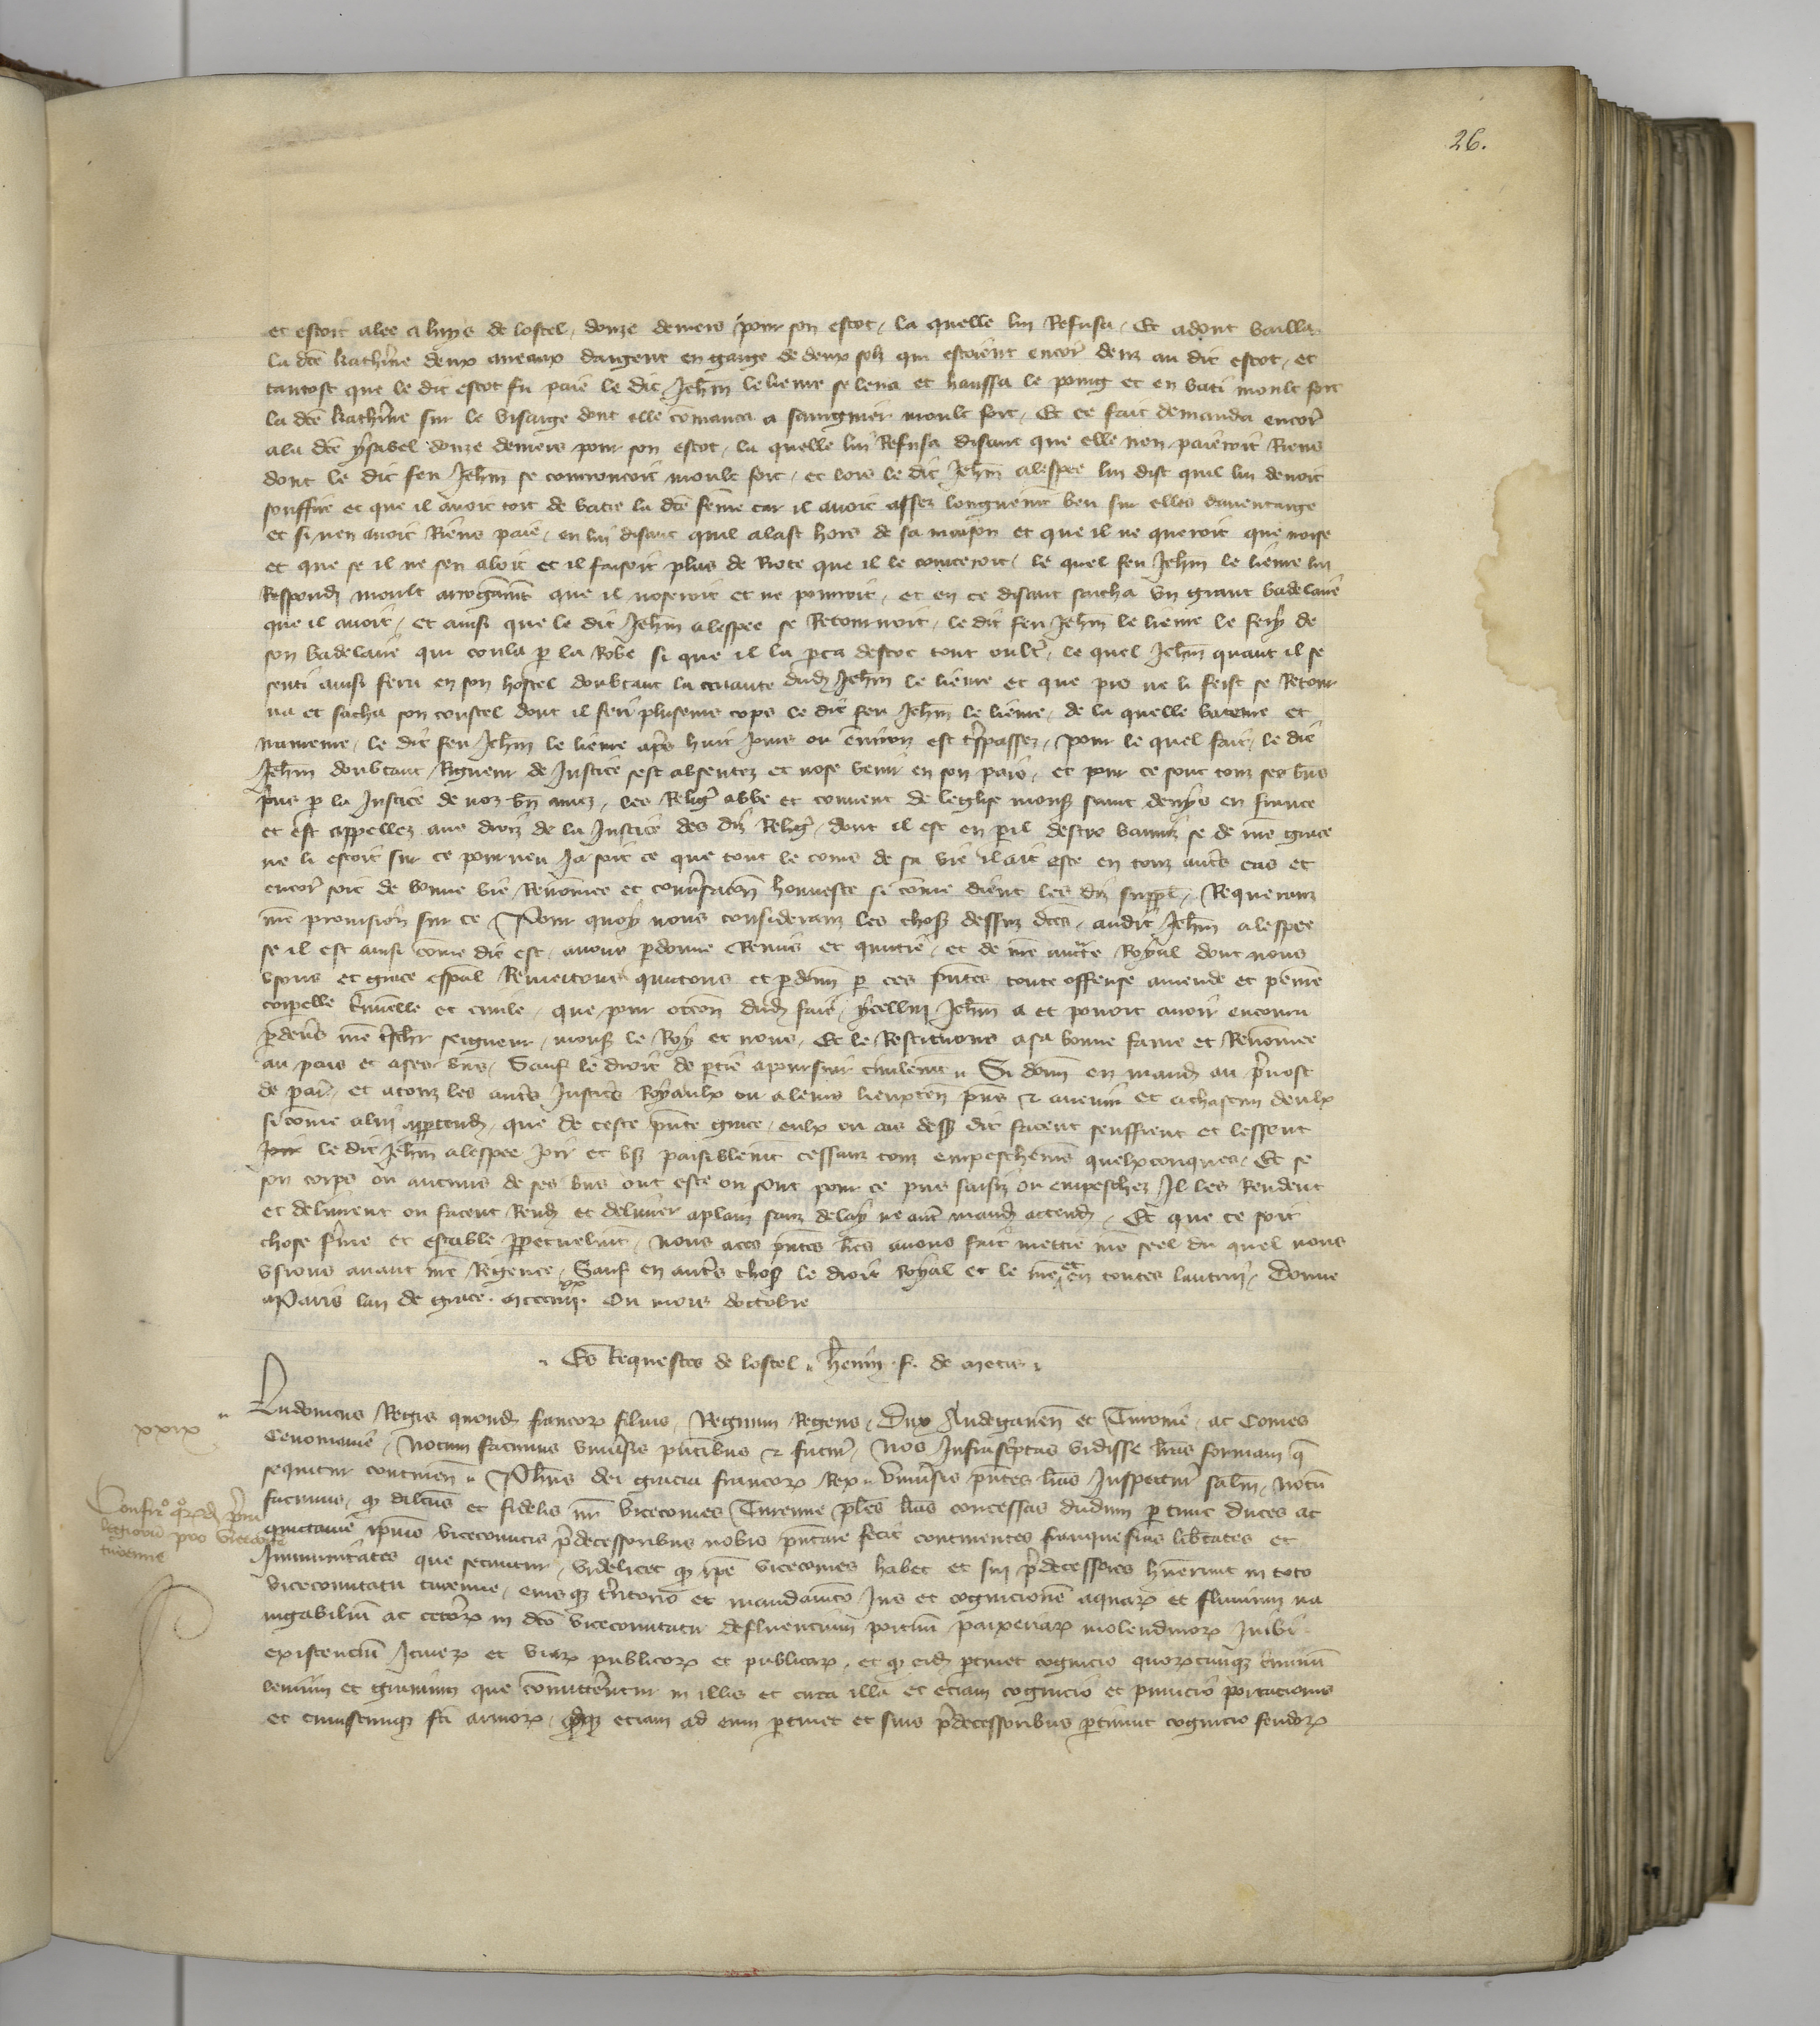 26.
et estoit alee a huys de lostel, douze deniers pour son escot, la quelle lui Refusa, Et adont bailla
la dcē katherīne deux aneaux dargent en gaige de deux solz qui estoient encor̄ deuz au dit escot, et
tantost que le dit escot fu paie le dit Jeh̄m le lieure se leua et haussa le poing et en bati moult fort
la dcē katherīne sur le visaige dont elle cōmanca a saingnier moult fort, Et ce fait demanda encor̄
a la dcē ysabel douze deniers pour son escot, la quelle lui Refusa disant que elle nen paieroit Riens
dont le dit feu Jeh̄m se courroucoit moult fort, et lors le dit Jeh̄m alespee lui dist quil lui deuoit
souffire et que il auoit tort de batre la dcē feme car il auoit assez longuemt̄ beu sur elles dauentaige
et si nen auoit Riens paie, en lui disant quil alast hors de sa maison et que il ne queroit que noise
et que se il ne sen aloit et il faisoit plus de Riote que il le courceroit, le quel feu Jeh̄m le lieure lui
Respondȝ moult arrogāmt̄ que il noseroit et ne pourroit, et en ce disant sacha vn grant badelaire
que il auoit, et ainsi que le dit Jeh̄m alespee se Retournoit, le dit feu Jeh̄m le lieure le fery de
son badelaire qui coula p̄ la Robe si que il la p̄ca destoc tout oultr̄, le quel Jeh̄m quant il se
senti ainsi feru en son hostel doubtant la cruaute dudȝ Jeh̄m le lieure et que pis ne li feist se Retour
na et sacha son coustel dont il feri plusieurs cops le dit feu Jeh̄m le lieure, de la quelle bateure et
naureure, le dit feu Jeh̄m le lieure aprēs huit Jours ou enuiron est t̄spassez, pour le quel fait, le dit
Jeh̄m doubtant Rigueur de Justice sest absentez et nose venir en son pais, et pour ce sont touz ses biēs
prins p̄ la Justice de noz bn̄ amez, les Religȝ abbe et couuent de leglise monsȝ saint denys en france
et est appellez aus droiz de la Justice des dīz Religȝ, dont il est en peril destre banniz se de nr̄e grace
ne li estoit sur ce pourueu Ja soit ce que tout le cours de sa vie il ait este en touz autr̄s cas et
encor̄ soit de bonne vie Renōmee et conuersacōn honneste si cōme dient les dīz suppl̄, Requerans
nr̄e prouision sur ce, Pour quoy nous considerans les chosȝ dessuz dcēs, audit Jeh̄m alespee
se il est ainsi cōme dit est, auons pdonne Remis et quittie, et de nr̄e auctte Royal dont nous
vsons et grace espāl Remettons quittons et pdōnn p̄ ces pn̄tes toute offense amende et peine
corpelle crimelle et ciuile, que pour occōn dudȝ fait, ycellui Jeh̄m a et pouoit auoir encouru
p̄deuers nr̄e tschr̄ seigneur, monsȝ le Roy et nous, Et le Restituons a sa bonne fame et Renōmee
au pais et a ses biēs, Sauf le droit de ptie a poursuir ciuilemt̄ Si dōnn en mandȝ au p̄uost
de par̄, et a touz les autr̄s Justic̄s Royaulx ou a leurs lieuxten̄ pn̄s & auenir et a chascun deulx
si cōme a lui appartendȝ, que de ceste pn̄te grace, eulx ou cas dessȝ dit facent seuffrent et lessent
Joir le dit Jeh̄m alespee Joir et vsȝ paisiblemt̄ cessans touz empeschemēs quelxconques, Et se
son corps ou aucuns de ses biēs ont este ou sont pour ce prins saisiz ou empeschez Il les Rendent
et deliurent ou facent Rendȝ et deliurer a plain sanz delay ne autr̄ mandȝ attendȝ, Et que ce soit
chose ferme et estable ppetuelmt̄, Nous a ces pn̄tes lr̄es auons fait mettre nr̄e seel du quel nous
vsions auant nr̄e Regence, Sauf en autr̄s chosȝ le droit Royal et le nr̄e et en toutes lautruy, Donne
a Paris lan de grace. mccc iiij xx. Ou mois doctobre
Es Requestes de lostel, henry. f. de metis
xxix
Ludouicus Regis quondȝ francorꝝ filius, Regnum Regens, Dux Andegauen̄ et Turonie, ac Comes
Cenomanie, Notum facimus vniuersis pn̄tibus & futur̄, Nos Infrascr̄ptas vidisse lr̄as formam q̄
sequitur continen̄ Ph̄us dei gracia francorꝝ Rex vniuersis pn̄tes lr̄as Inspectur̄ salm̄, Notū
facimus, qȝ dilcūs et fidelis nr̄ vicecomes Turenne pl̄es lr̄as concessas dudum p̄ tunc duces ac
quitanie ipsius vicecomitis p̄decessoribus nobis pn̄tare fecit continentes franquesias lib̄tates et
Immunitates que secuntur, videlicet qȝ ip̄e vicecomes habet et sui p̄decessores hūerunt in toto
vicecomitatu turenne, eiusqȝ t̄ritorio et mandamēto Jus et cognicionē aquarꝝ et fluuium na
uigabiliū ac ceterorꝝ in dcō vicecomitatu defluentium portuū paxeriarꝝ molendinorꝝ Inibi
existenciū Itinerꝝ et viarꝝ publicorꝝ et publicarꝝ, et qȝ eidȝ ptinet cognicio quorꝝcumqȝ criminū
leuium et grauium que cōmitterentur in illis et circa illa et eciam cognicio et punicio portacionis
et cuiuscumqȝ fc̄i armorꝝ, qdqȝ eciam ad eum ptinet et suis p̄decessoribus ptinuit cognicio feudorꝝ
Confir̄o
legiorū pro vicecōite
turenne